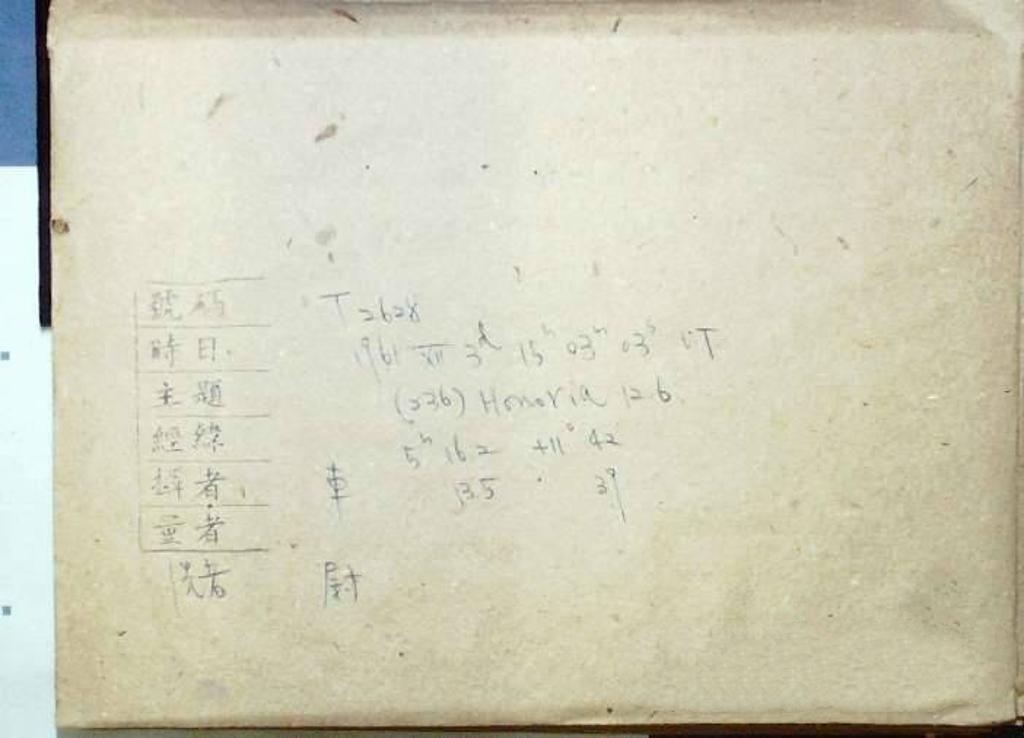 號码 T 2628
時日. 1961 XII 3d 15h 03m 03s UT
主題 (236) Honoria 12.6
經緯 5h 16.2 +11° 42
攝者. 車 13.5 39
量者
洗者 尉